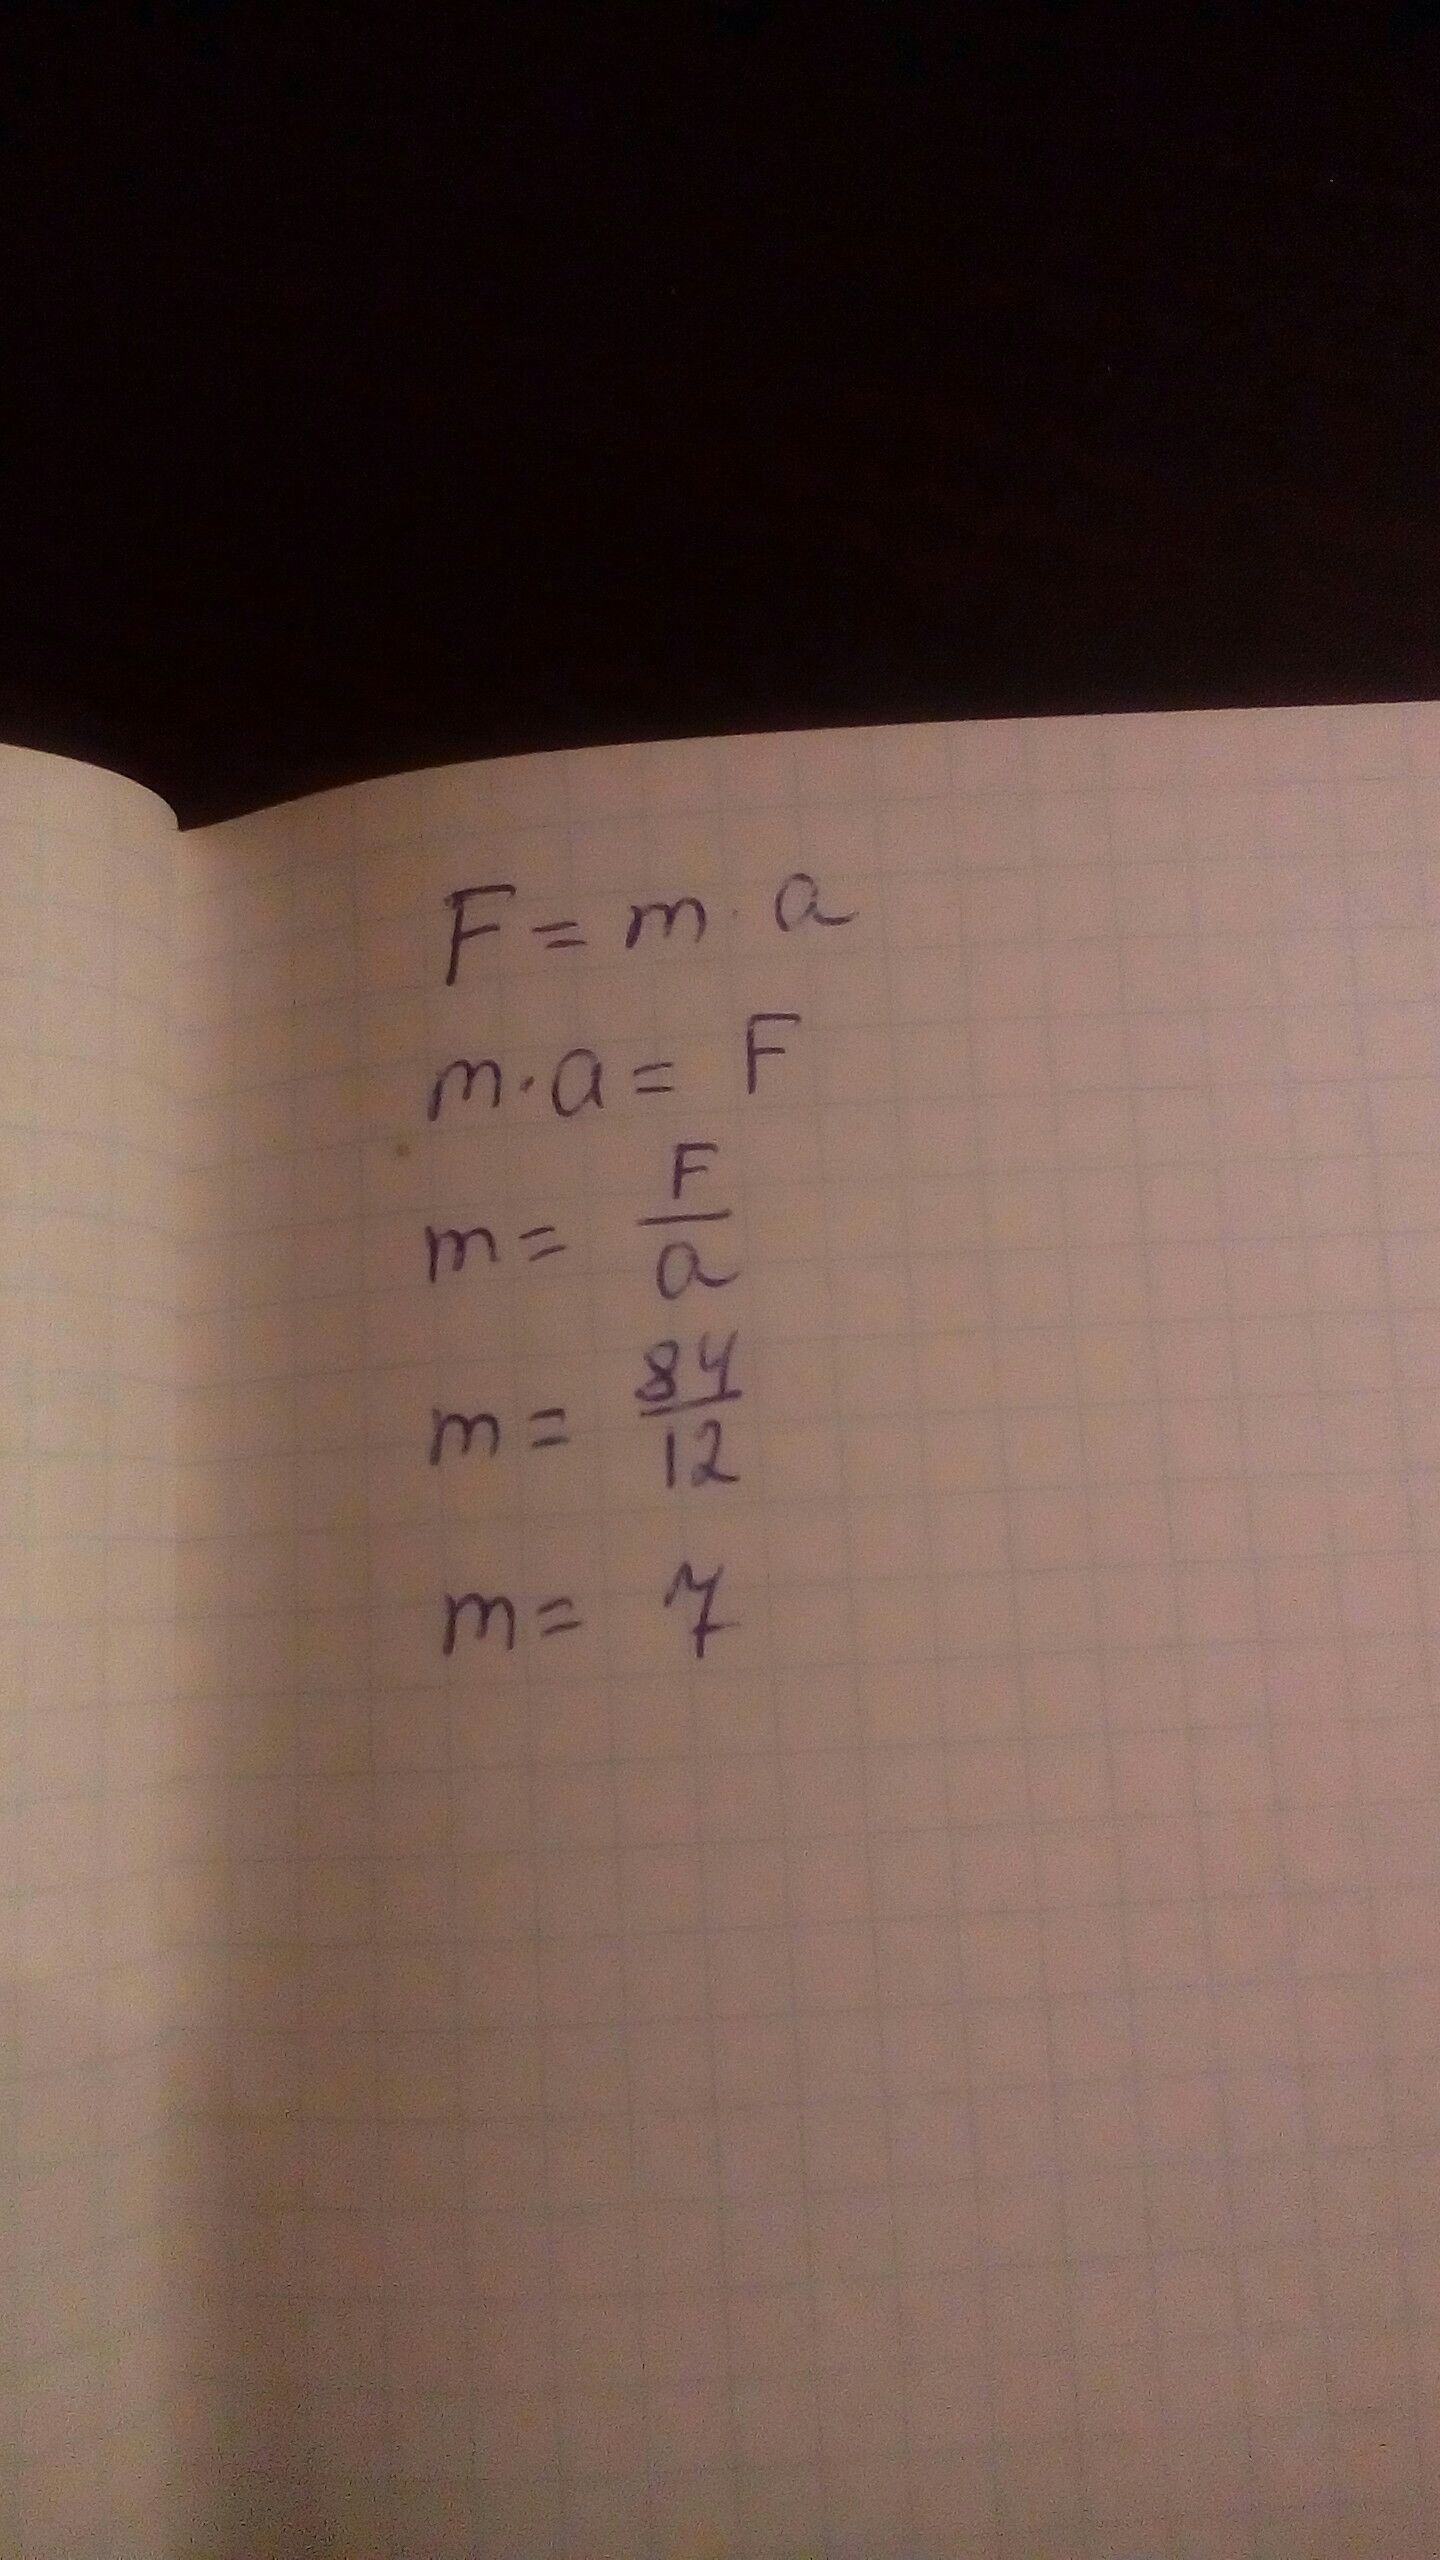 F = m · a
m · a = F
m = F/a
m = 84/12
m = 7